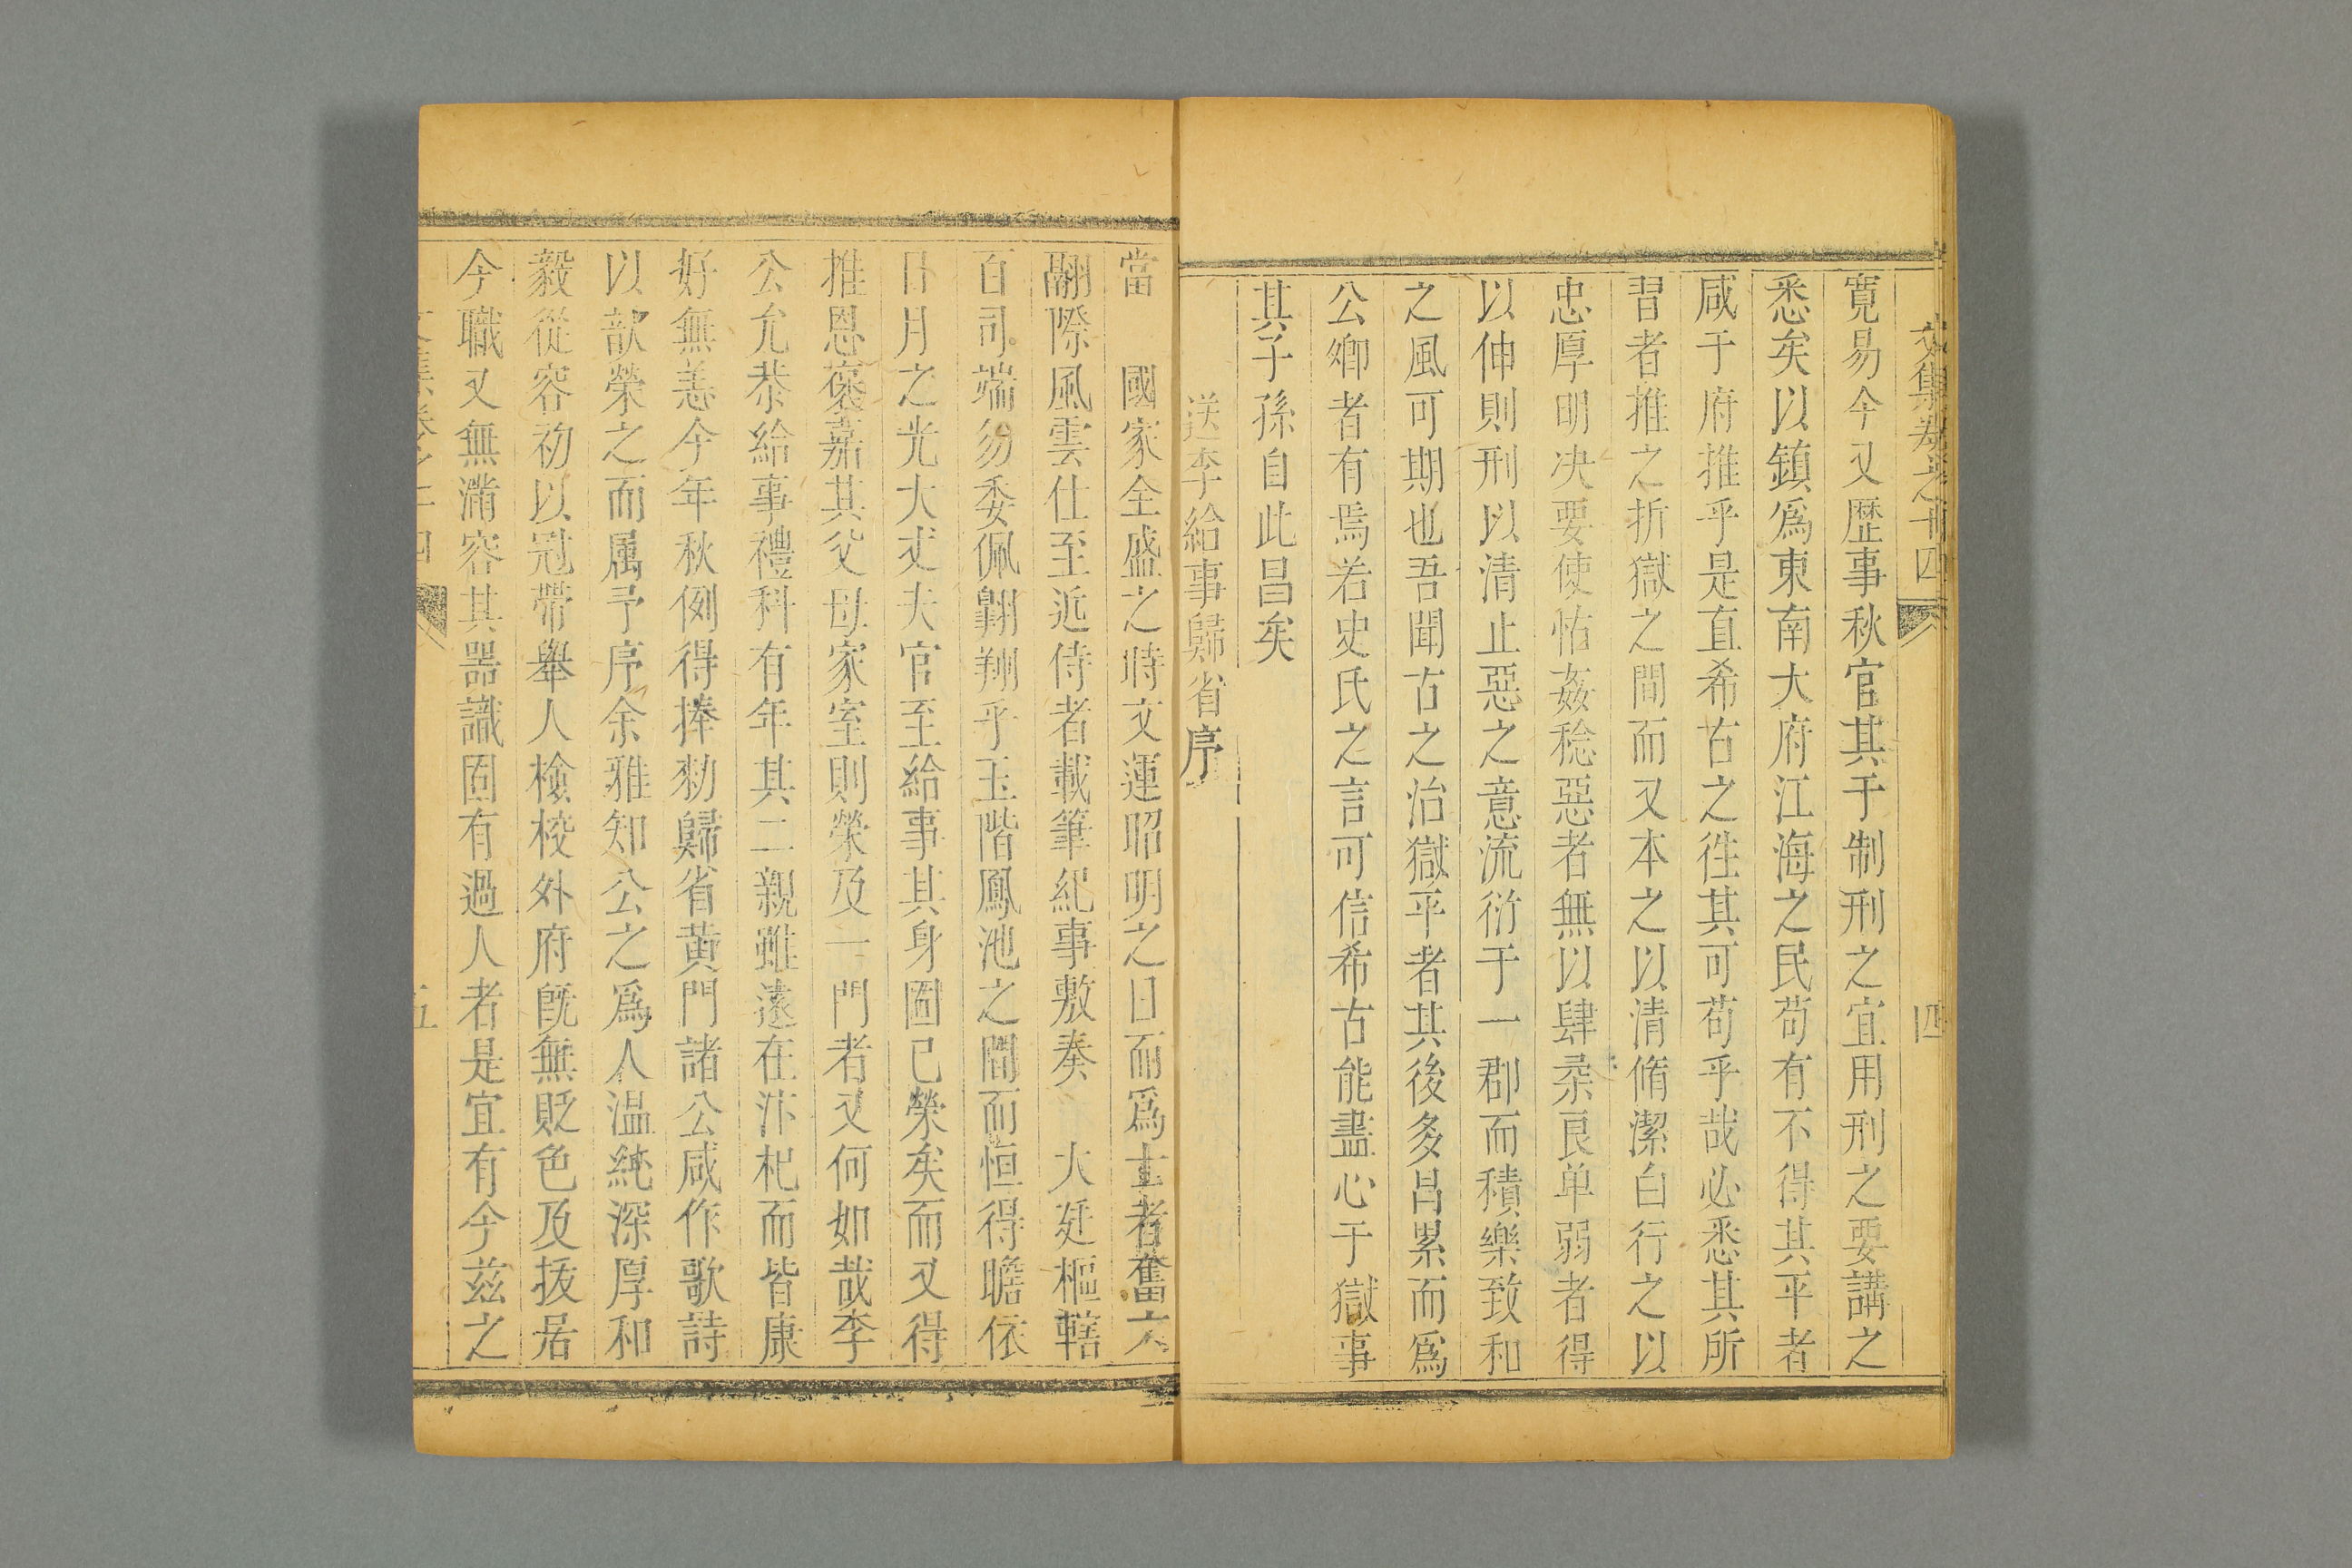 文集卷之十四 四
寛易今又歷事秋官其于制刑之宜用刑之要講之
悉矣以鎮爲東南大府江海之民苟有不得其平者
咸于府推乎是直希古之徃其可苟乎哉必悉其所
習者推之折獄之間而又本之以清脩潔白行之以
忠厚明决要使怙姦稔惡者無以肆柔良单弱者得
以伸則刑以清止惡之意流衍于一郡而積樂致和
之風可期也吾聞古之治獄平者其後多昌累而爲
公卿者有焉若史氏之言可信希古能盡心于獄事
其子孫自此昌矣
送李給事歸省序
當 國家全盛之時文運昭明之日而爲士者奮六
翮際風雲仕至近侍者載筆紀事敷奏 大廷樞轄
百司端笏委佩翺翔乎玉階鳳池之間而恒得瞻依
日月之光大丈夫官至給事其身固已榮矣而又得
推恩褒嘉其父母家室則榮及一門者又何如哉李
公允恭給事禮科有年其二親雖遠在汴杞而皆康
好無恙今年秋例得捧勑歸省黄門諸公咸作歌詩
以歆榮之而属予序余雅知公之爲人温純深厚和
毅從容初以冠帶舉人檢校外府旣無貶色及拔居
今職又無滿容其器識固有過人者是宜有今兹之
文集卷之十四 五